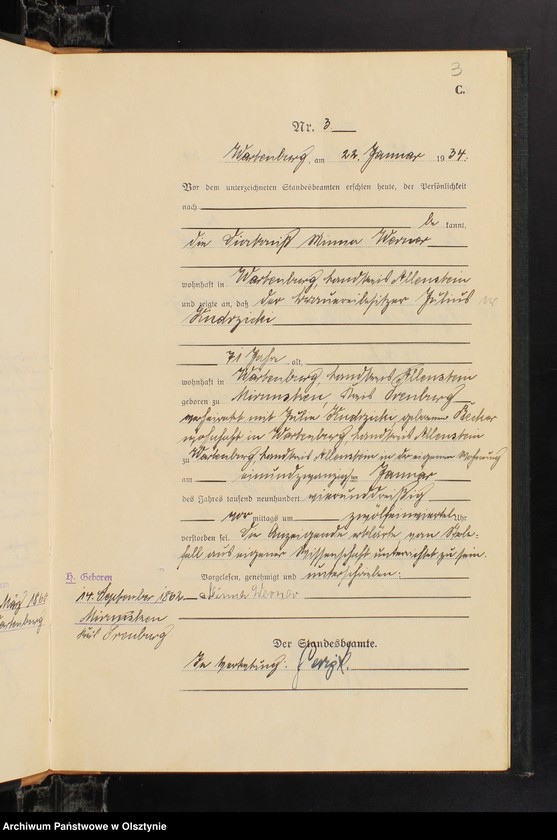 3
C.
Nr. 3
Wartenburg, am 22. Januar 1934.
Vor dem unterzeichneten Standesbeamten erschien heute, der Persönlichkeit
nach
be kannt,
die Diakoniß Minna Werner
wohnhaft in Wartenburg, Landkreis Allenstein
und zeigte an, daß der Brauereibesitzer Julius
71 Jahr alt,
wohnhaft in Wartenburg, Landkreis Allenstein
geboren zu Kreis
verheiratet mit Julie geborene Becker
wohnhaft in Wartenburg, Landkreis Allenstein
zu Wartenburg Landkreis Allenstein in der eigenen Wohnung
am einundzwanzigsten Januar
des Jahres tausend neunhundert vierunddreißig
vor mittags um zwölfeinviertel Uhr
verstorben sei. Die Anzeigende erklärte vom Sterbe-
fall aus eigener Wissenschaft unterrichtet zu sein.
Vorgelesen, genehmigt und unterschrieben.
Minna Werner
H. Geboren
14. September 1862
Kreis
Der Standesbeamte.
In Vertretung.
März
Wartenburg
Archiwum Państwowe w Olsztynie